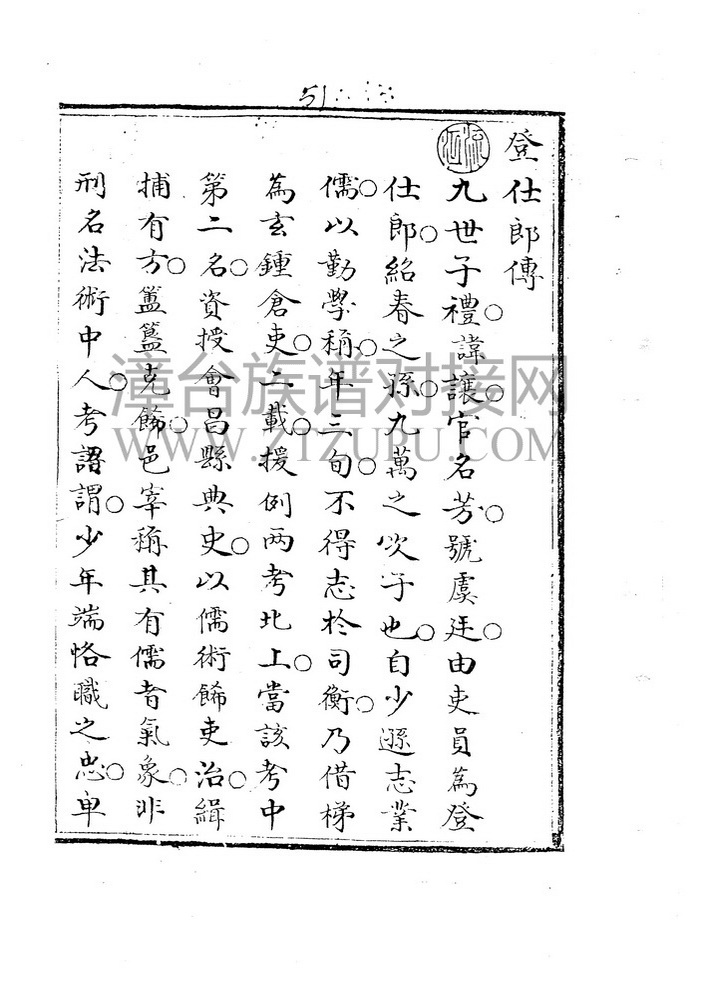 51
登仕郎傳
九世子禮○諱讓○官名芳○號虞廷○由吏員為登
仕郎○紹春之孫○九萬之次子也○自少遜志業
儒○以勤學稱○年三旬○不得志於司衡○乃借梯
為玄鍾倉吏○二載○援例两考北上○當該考中
第二名○資授會昌縣典史○以儒術餙吏治○緝
捕有方○簠簋克餙○邑宰稱其有儒者氣象○非
刑名法術中人○考語謂○少年端恪職之忠○卑
漳台族谱对接网
WWW.ZTZUPU.COM